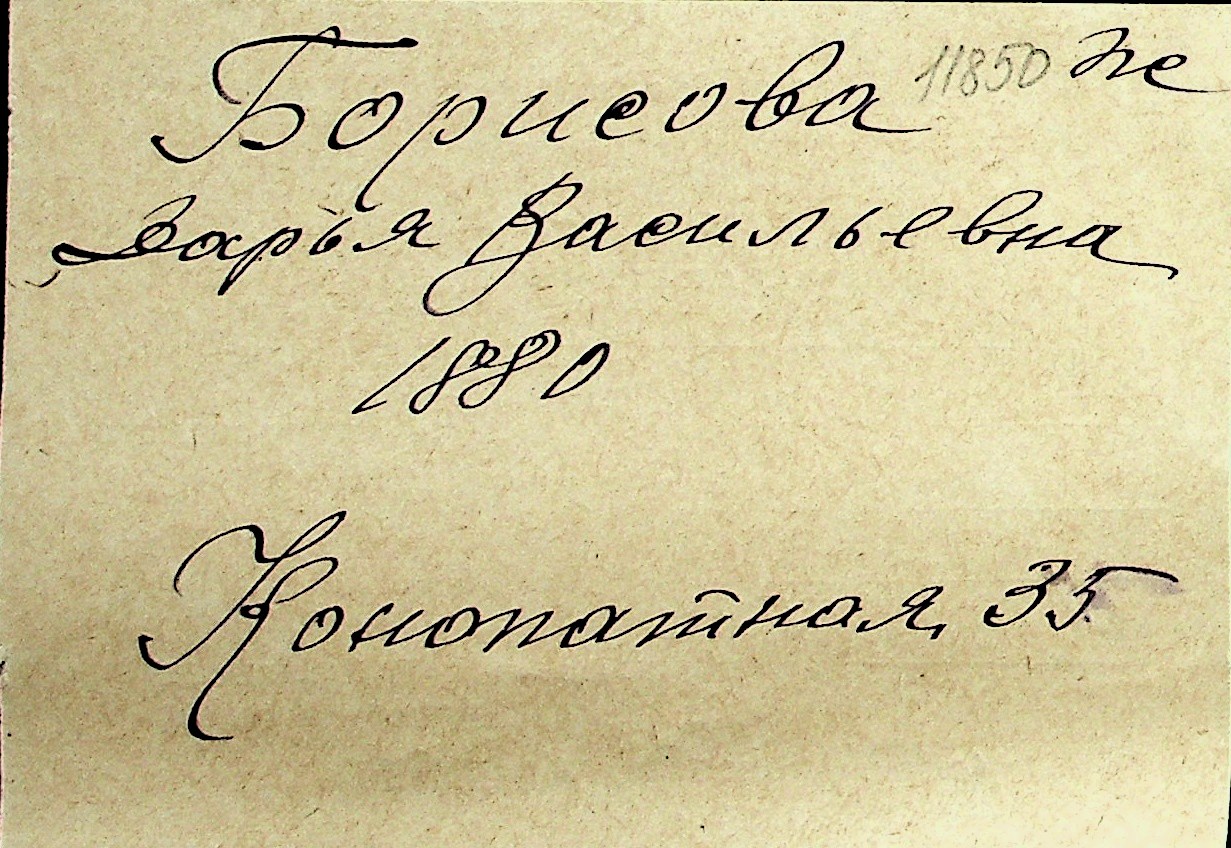 Борисова 11850 же
Дарья Васильевна
1880
Конопатная, 35